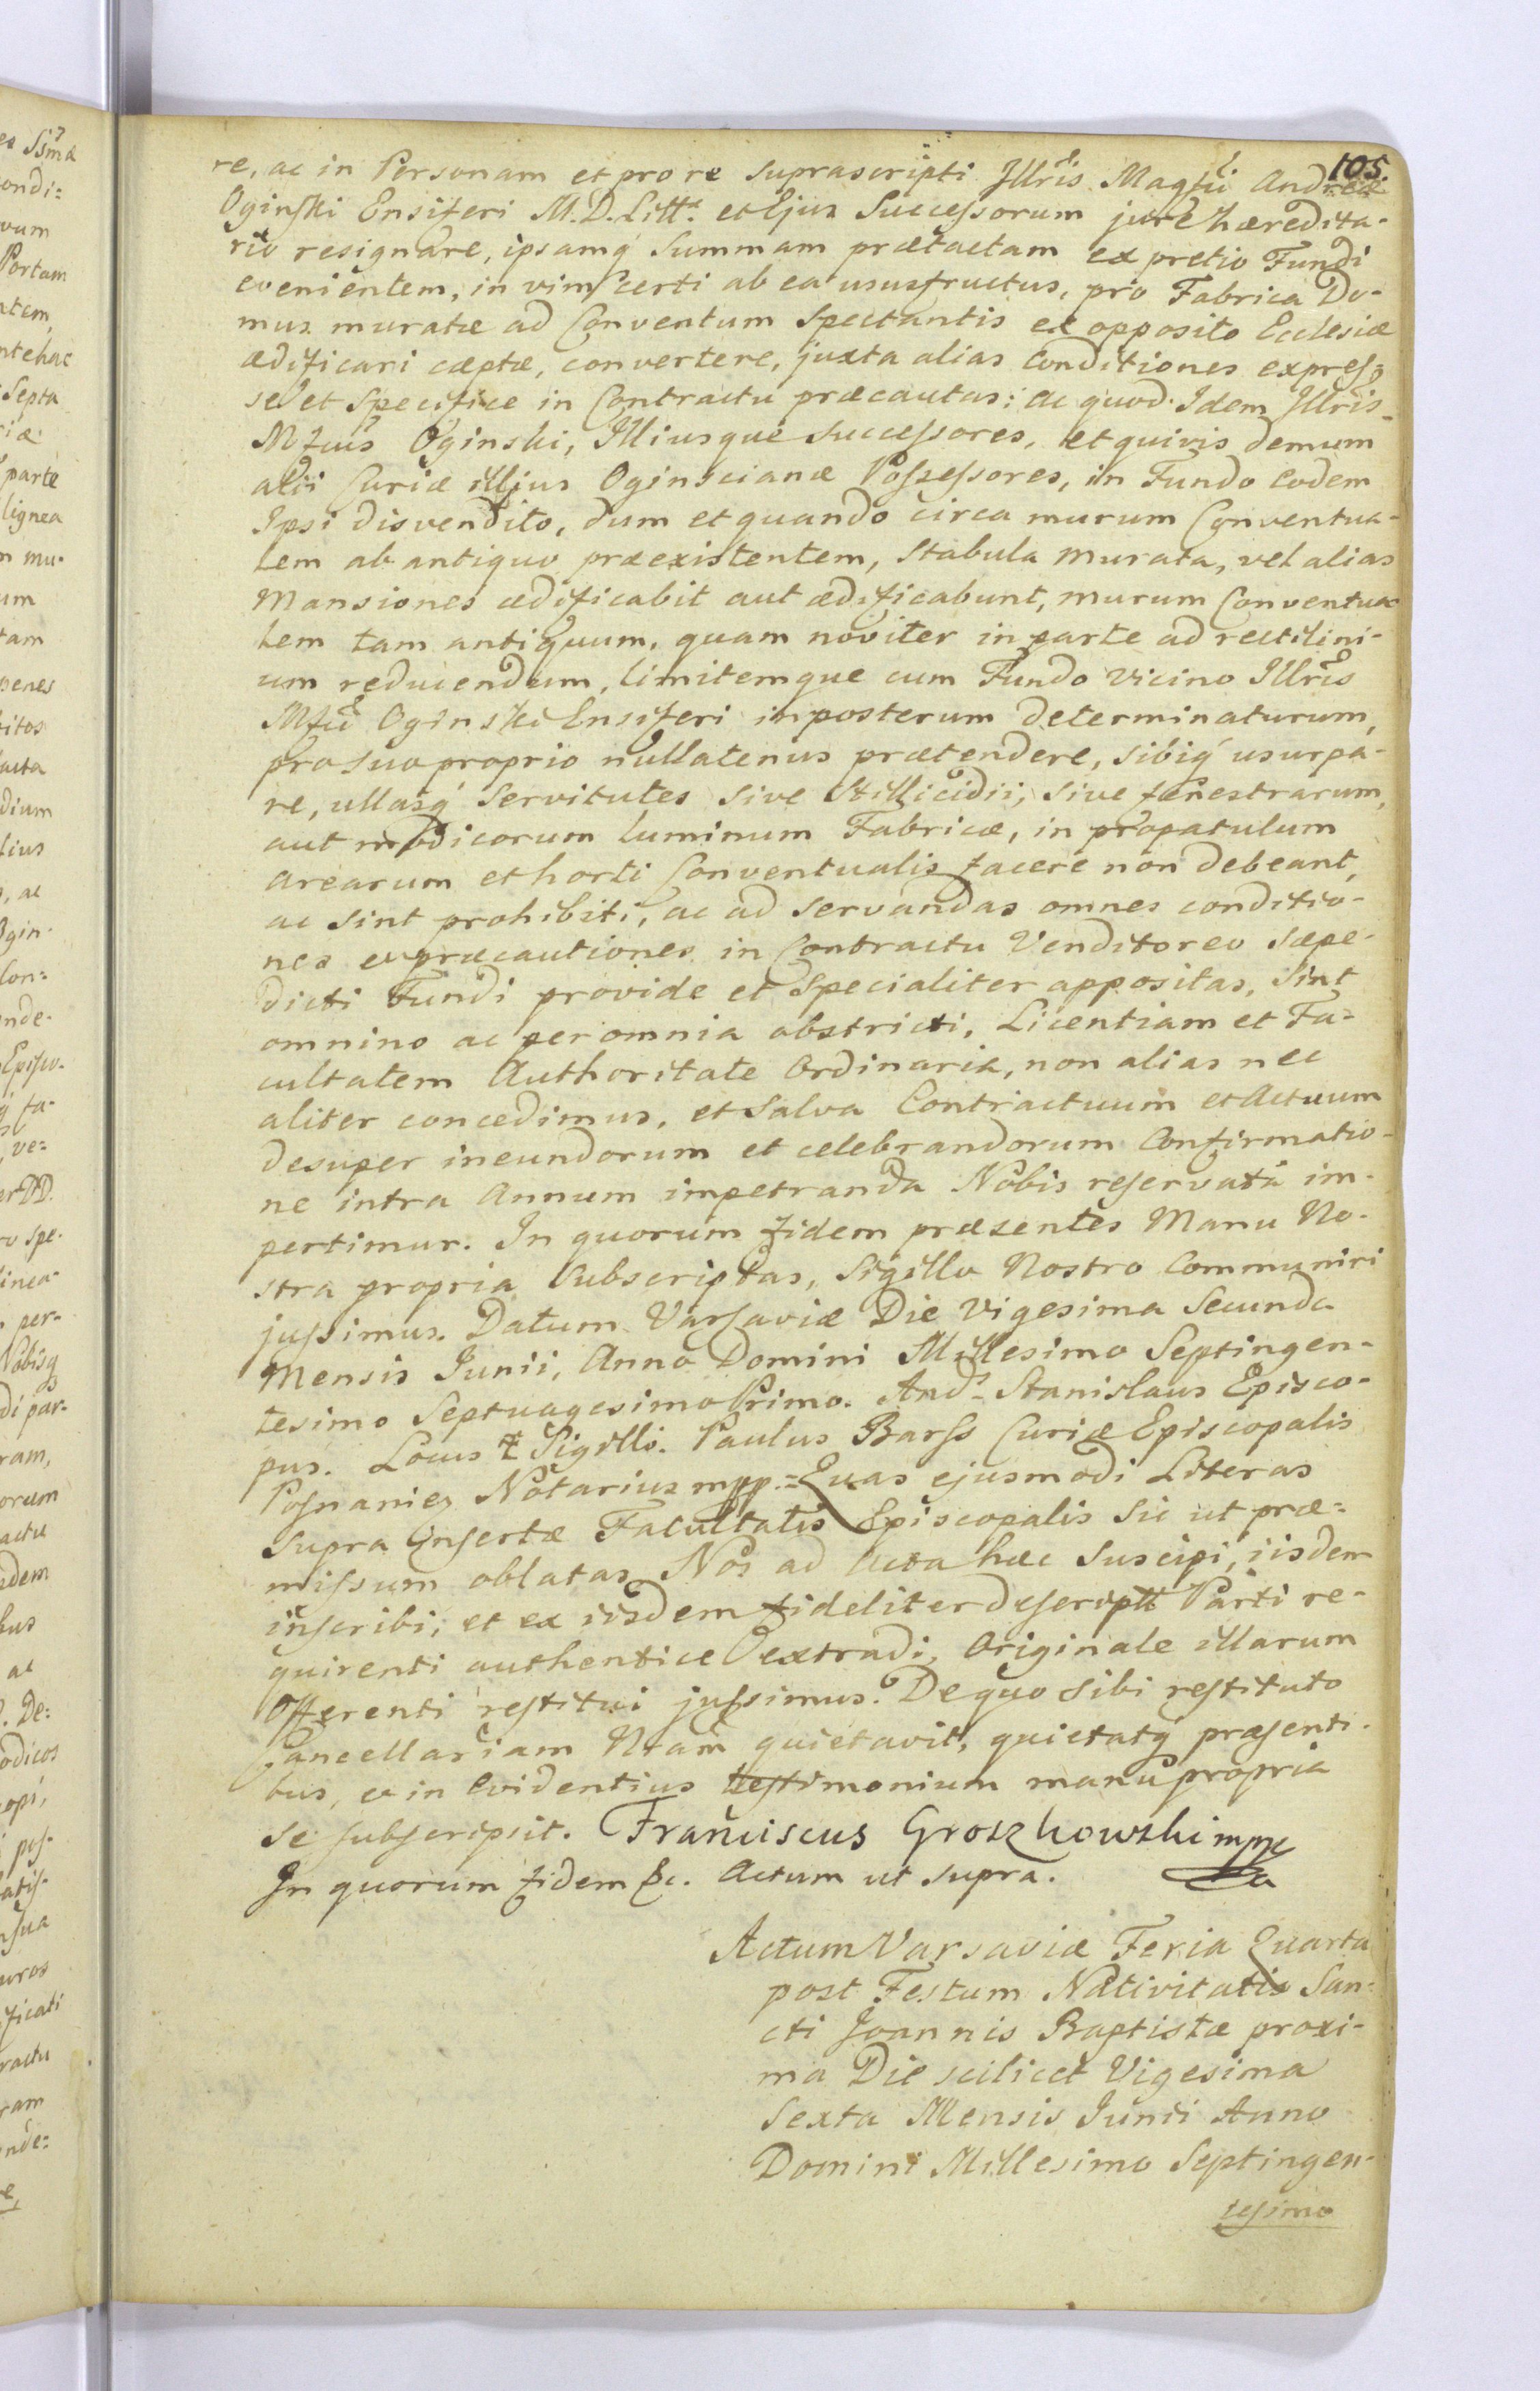 105.
re, ac in Personam et pro re suprascripti Jllris Magfci Andreæ
Oginski Ensiferi M.D.Litt. et Ejus Successorum jure hæredita-
rio resignare, ipsamq́ Summam prætactam ex pretio Fundi
evenientem, in vim certi ab ea ususfructus, pro Fabrica Do-
mus muratæ ad Conventum Spectantis ex opposito Ecclesiæ
ædificari cæptæ, convertere, juxta alias Conditiones expres-
se et Specifice in Contractu præcautas: ac quod Idem Jllris
Mfcus Oginski, Illiusque successores, et quivis demum
alii Curiæ illius Oginscianæ Possessores, in Fundo eodem
Ipsi disvendito, dum et quando circa murum Conventua-
lem ab antiquo præexistentem, Stabula murata, vel alias
Mansiones ædificabit aut ædificabunt, murum Conventua-
lem tam antiquum, quam noviter in parte ad rectilini-
um reducendum, limitemque cum Fundo vicino Illris
Mfci Oginski Ensiferi inposterum determinaturum,
pro suo proprio nullatenus prætendere, sibiq́ usurpa-
re, ullasq́ Servitutes sive Stillicidii, sive fenestrarum,
aut modicorum luminum Fabricæ, in propatulum
arearum et horti Conventualis facere non debeant,
ac sint prohibiti, ac ad servandas omnes conditio-
nes et præcautiones in Contractu Venditoreo Sæpe-
dicti Fundi provide et Specialiter appositas, Sint
omnino ac per omnia obstricti, Licentiam et Fa-
cultatem Authoritate Ordinaria, non alias nec
aliter concedimus, et Salva Contractuum et Actuum
desuper ineundorum et celebrandorum Confirmatio-
ne intra Annum impetranda Nobis reservatâ im-
pertimur. In quorum fidem præsentes Manu No-
stra propria Subscriptas, Sigillo Nostro Communiri
jussimus. Datum Varsaviæ Die Vigesima Secunda
Mensis Junii, Anno Domini Millesimo Septingen-
tesimo Septuagesimo Primo. Andr Stanislaus Episco-
pus. Locus Sigilli. Paulus Barss Curiæ Episcopalis
Posnanien Notarius mpp. = Quas ejusmodi Literas
supra insertæ Facultatis Episcopalis sic ut præ-
missum oblatas Nos ad Acta hæc suscipi, iisdem
inscribi, et ex iisdem fideliter descriptt Parti re-
quirenti authentice extradi, Originale illarum
Offerenti restitui jussimus. De quo sibi restituto
Cancellariam Nram quietavit, quietatq́ præsenti-
bus, et in Evidentius testimonium manu propria
se subscripsit. Franciscus Groszkowski mpp
In quorum fidem &c. Actum ut supra.
Actum Varsaviæ Feria Quarta
post Festum Nativitatis San-
cti Joannis Baptistæ proxi-
ma Die scilicet Vigesima
Sexta Mensis Junii Anno
Domini Millesimo Septingen-
tesimo